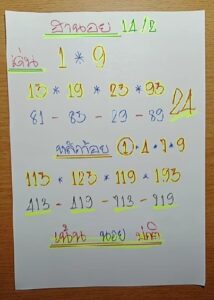 ฮานอย 14/2
เด่น 1 * 9
13 * 19 * 23 * 93
81 - 83 - 29 - 89 24
หลักร้อย ① 4 7 9
113 * 123 * 119 * 193
413 - 419 - 713 - 719
เน้น นอย ปกติ